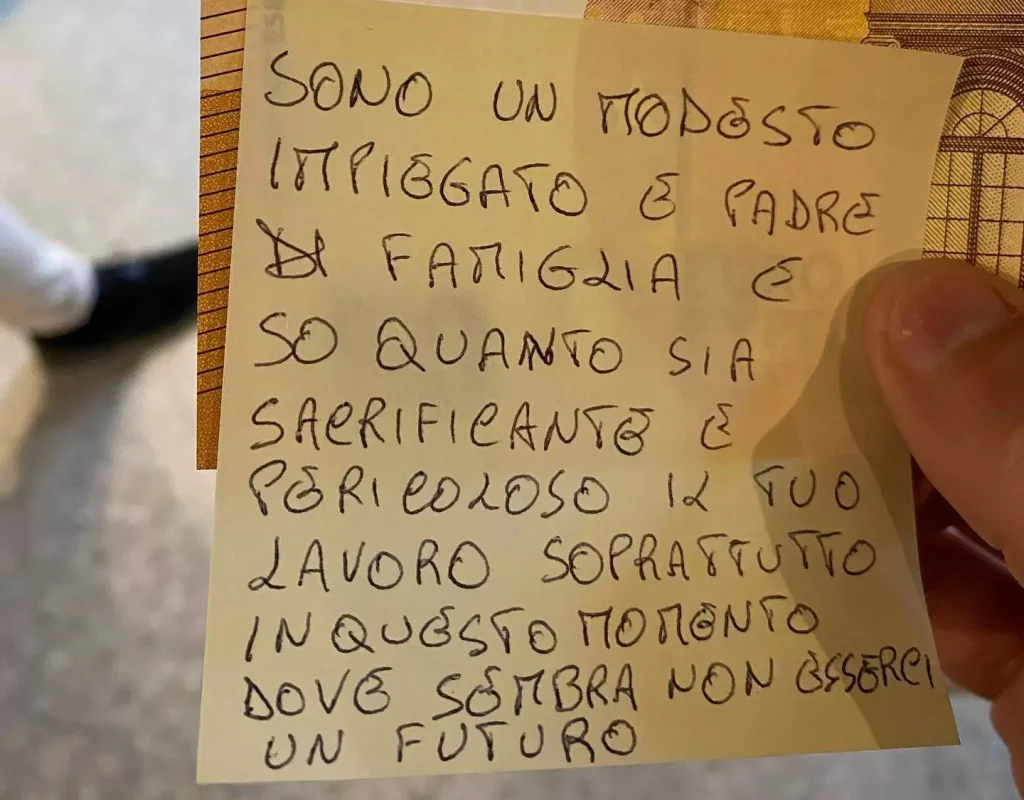 SONO UN MODESTO
IMPIEGATO E PADRE
DI FAMIGLIA E
SO QUANTO SIA
SACRIFICANTE E
PERICOLOSO IL TUO
LAVORO SOPRATTUTTO
IN QUESTO MOMENTO
DOVE SEMBRA NON ESSERCI
UN FUTURO